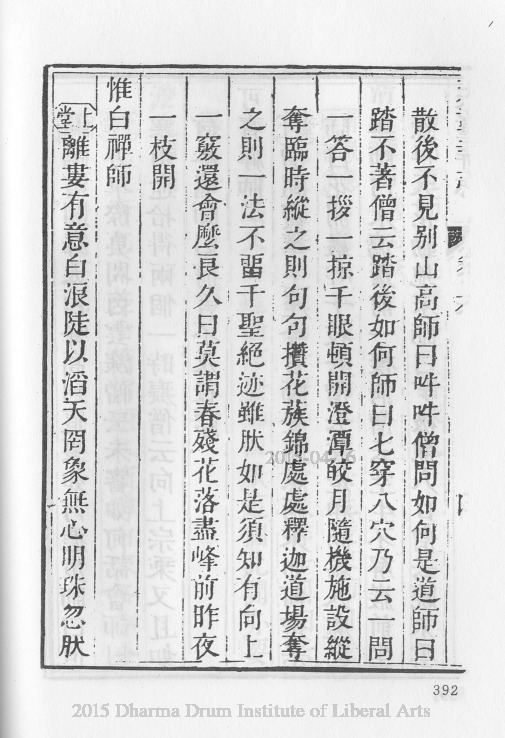 散後不見别山高師曰吽吽僧問如何是道師曰
踏不著僧云踏後如何師曰七穿八穴乃云一問
一答一拶一掠千眼頓開澄潭皎月隨機施設縱
奪臨時縱之則句句攢花蔟錦處處釋迦道場奪
之則一法不畱千聖絕迹雖肰如是須知有向上
一竅還會麽良久曰莫謂春殘花落盡峰前昨夜
一枝開
惟白禪師
上堂離婁有意白浪陡以滔天罔象無心明珠忽肰
392
2015 Dharma Drum Institute of Liberal Arts